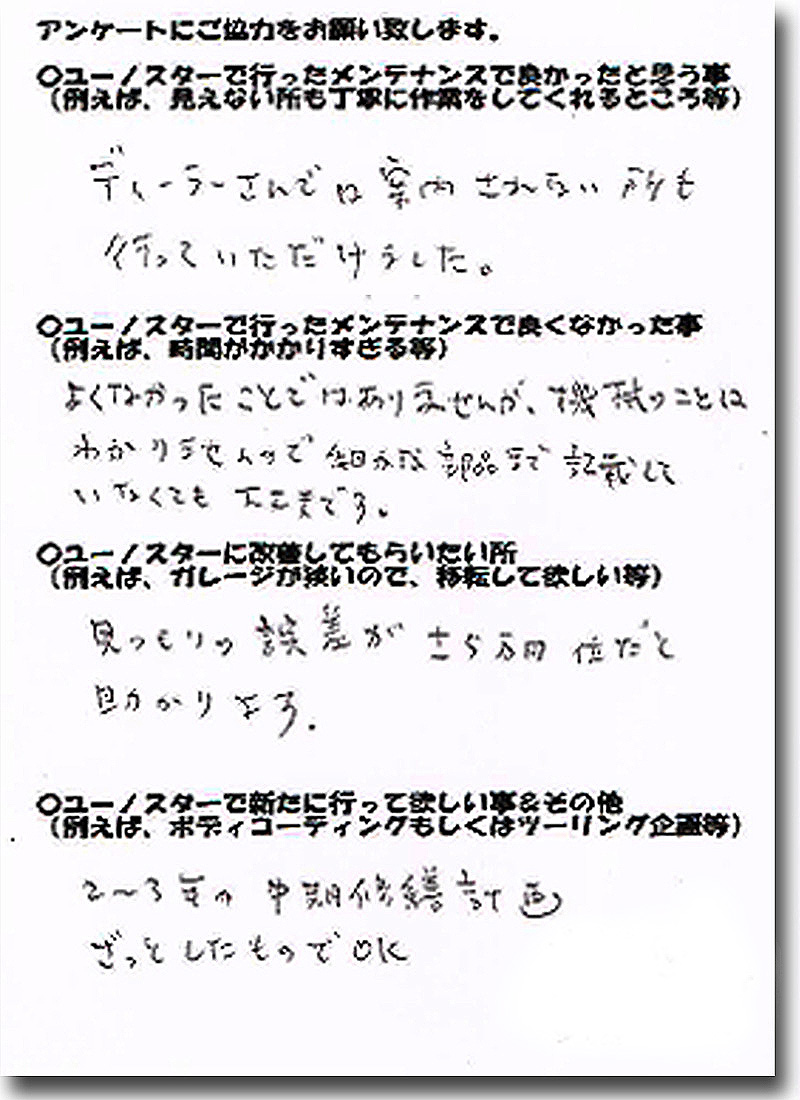 アンケートにご協力をお願い致します。
○ユーノスターで行ったメンテナンスで良かったと思う事
(例えば、見えない所も丁寧に作業をしてくれるところ等)
ディーラーさんでは案内されない所も
行っていただけました。
○ユーノスターで行ったメンテナンスで良くなかった事
(例えば、時間がかかりすぎる等)
よくなかったことではありませんが、機械のことは
わかりませんので細かな部品まで記載して
いなくても大丈夫です。
○ユーノスターに改善してもらいたい所
(例えば、ガレージが狭いので、移転して欲しい等)
見つもりの誤差が±5万円位だと
助かります.
○ユーノスターで新たに行って欲しい事&その他
(例えば、ボディコーティングもしくはツーリング企画等)
2～3年の中期修繕計画
ざっとしたものでOK